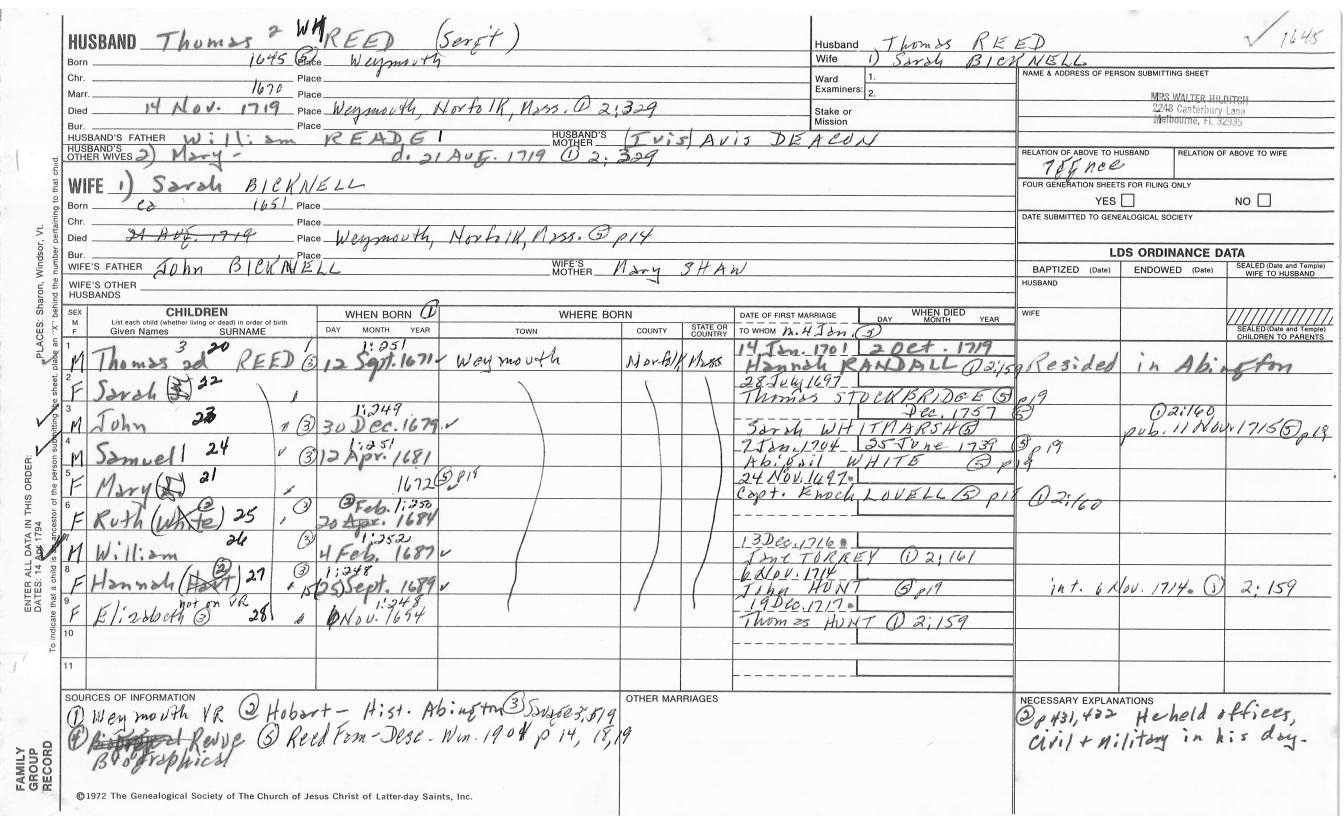 HUSBAND Thomas 2 WH REED (Sergt)
Born 1645 (5) Place Weymouth
Chr. Place
Marr. 1670 Place
Died 14 Nov. 1719 Place Weymouth, Norfolk, Mass. (1) 2:329
Bur. Place
HUSBAND'S FATHER William READE 1 HUSBAND'S MOTHER (Ivis) Avis DEACON
HUSBAND'S OTHER WIVES 2) Mary - d. 21 Aug. 1719 (1) 2:329
WIFE 1) Sarah BICKNELL
Born ca 1651 Place
Chr. Place
Died 21 Aug. 1719 Place Weymouth, Norfolk, Mass. (5) p14
Bur. Place
WIFE'S FATHER John BICKNELL WIFE'S MOTHER Mary SHAW
WIFE'S OTHER HUSBANDS
Husband Thomas REED
Wife 1) Sarah BICKNELL
1645
Ward Examiners: 1.
2.
Stake or Mission
NAME & ADDRESS OF PERSON SUBMITTING SHEET
MRS WALTER HILDITCH
2248 Canterbury Lane
Melbourne, FL 32935
RELATION OF ABOVE TO HUSBAND RELATION OF ABOVE TO WIFE
FOUR GENERATION SHEETS FOR FILING ONLY
YES NO
DATE SUBMITTED TO GENEALOGICAL SOCIETY
LDS ORDINANCE DATA
BAPTIZED (Date) ENDOWED (Date) SEALED (Date and Temple) WIFE TO HUSBAND
HUSBAND
WIFE
SEALED (Date and Temple) CHILDREN TO PARENTS
SEX M F CHILDREN
List each child (whether living or dead) in order of birth
Given Names SURNAME
WHEN BORN (1)
DAY MONTH YEAR
WHERE BORN
TOWN COUNTY STATE OR COUNTRY
DATE OF FIRST MARRIAGE
TO WHOM m. 4 Jan. (5)
WHEN DIED
DAY MONTH YEAR
1 M Thomas 3 2d 20 REED (3) 1:251 12 Sept. 1671 Weymouth Norfolk Mass 14 Jan. 1701 2 Oct. 1719
Hannah RANDALL (1) 2:159 Resided in Abington
2 F Sarah 22 28 July 1697
Thomas STOCKBRIDGE (5) p19
3 M John 23 " (3) 1:249 30 Dec. 1679 Dec. 1757 (5) (1) 2:160
Sarah WHITMARSH (5) pub. 11 Nov. 1715 (5) p19
4 M Samuell 24 (3) 1:251 12 Apr. 1681 7 Jan. 1704 25 June 1739 (5) p19
Abigail WHITE (5) p19
5 F Mary 21 1672 (5) p19 24 Nov. 1697
Capt. Enoch LOVELL (5) p18 (1) 2:160
6 F Ruth (White) (2) 25 (3) (2) Feb. 1:250
20 Apr. 1684
7 M William 26 (3) 1:252 4 Feb. 1687 13 Dec. 1716
Jane TORREY (1) 2:161
8 F Hannah (Hart) (2) 27 (3) 1:248 15 (25) Sept. 1689 6 Nov. 1714
John HUNT (5) p19 int. 6 Nov. 1714. (1) 2:159
9 F Elizabeth (3) not on VR 28 1:248 Nov. 1694 19 Dec. 1717
Thomas HUNT (1) 2:159
10
11
SOURCES OF INFORMATION
(1) Weymouth VR (2) Hobart - Hist. Abington (3) Savage 3:519
(4) Revue (5) Reed Fam - Desc. Wm. 1901 p 14, 18, 19
Biographical
OTHER MARRIAGES
NECESSARY EXPLANATIONS
(2) p 431, 432 He held offices,
civil + military in his day.
©1972 The Genealogical Society of The Church of Jesus Christ of Latter-day Saints, Inc.
FAMILY GROUP RECORD
ENTER ALL DATA IN THIS ORDER:
DATES: 14 Apr 1794
PLACES: Sharon, Windsor, Vt.
To indicate that a child is an ancestor of the person submitting the sheet, place an "X" behind the number pertaining to that child.